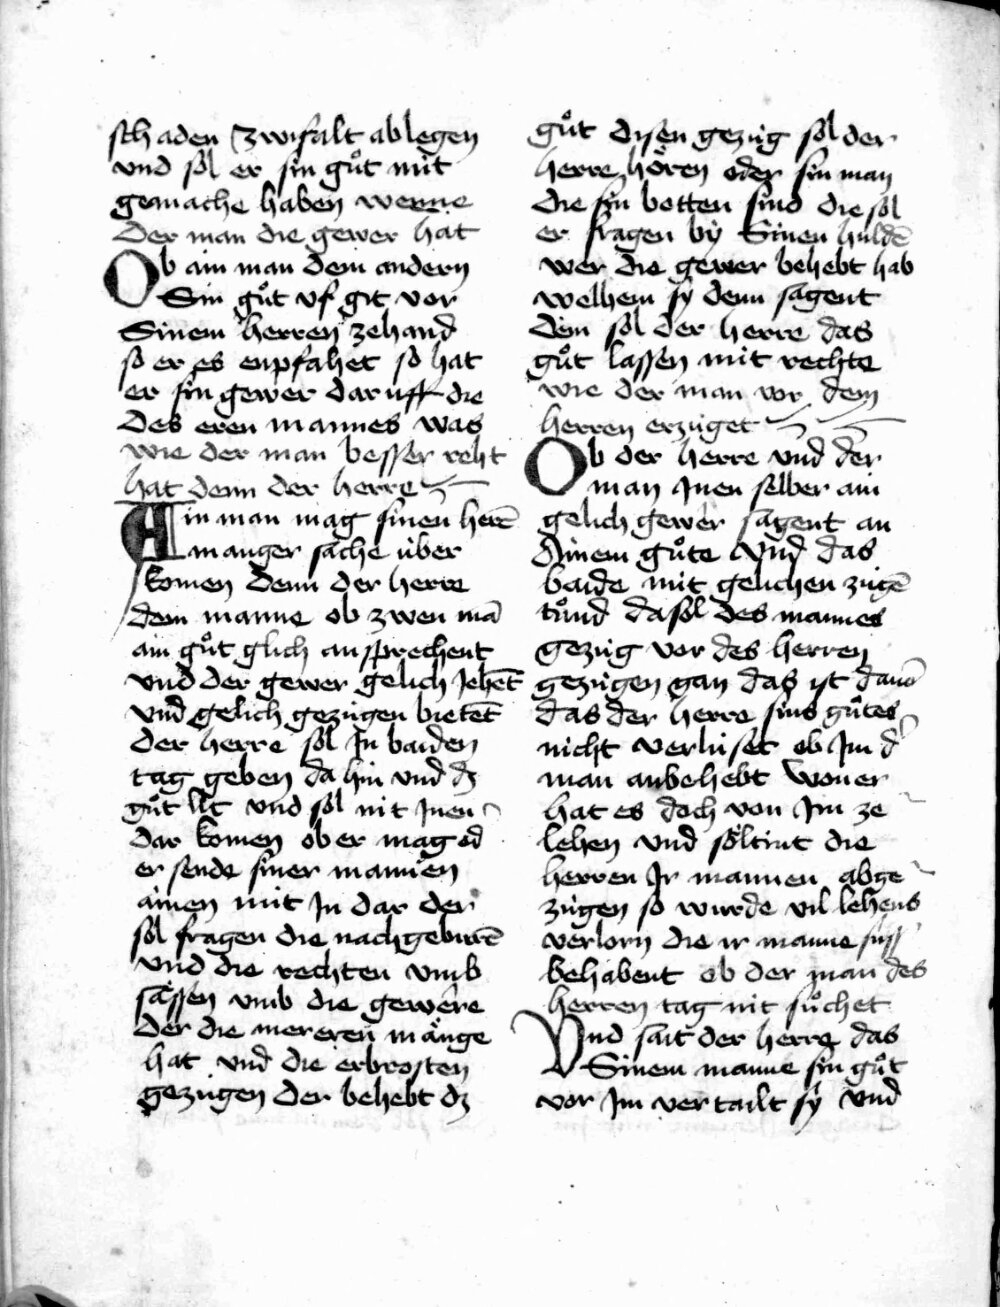 schaden zwifalt ablegen
vnd sol er sin gůt mit
gemache haben wenne
Der man die gewer hat
Ob ain man dem andern
Sin gůt vf git vor
Sinem herren zehand
so er es enpfahet so hat
er sin gewer dar uff die
Des eren mannes was
wie der man besser reht
hat denn der herre
Ain man mag sinen herē
manger sache über
komen Denn der herre
dem manne ob zwen mā
ain gůt glich ansprechent
vnd der gewer gelich Jehēt
vnd gelich gezügen bietēt
der herre sol In baiden
tag geben da hin vnd dʒ
gůt lit vnd sol mit Inen
dar komen ob er mag od
er sende siner mannen
ainen mit In dar der
sol fragen die nachgeburē
vnd die rechten vmb
sässen vmb die gewere
der die mereren mänge
hat vnd die erbrosten
gezügen der behebt dʒ
gůt disen gezüg sol der
herre hören oder sin man
die sin botten sind die sol
er fragen by Sinen huldē
wer die gewer behebt hab
welhem sy denn sagent
dem sol der herre das
gůt lassen mit rechte
wie der man vor dem
herren erzüget
Ob der herre vnd der
man Inen selber ain
gelich gewer sagent an
Ainem gůte vnd das
baide mit gelichen zügē
tůnd da sol des mannes
gezüg vor des herren
gezügen gan das ist dauō
das der herre sins gůtes
nicht verlüset ob Im d'
man anbehebt Won er
hat es doch von Im ze
lehen vnd söltint die
herren Ir mannen abge
zügen so wurde vil lehens
verlorn die ir manne suss
behabent ob der man des
herren tag nit sůchet
Vnd sait der herre das
Sinem manne sin gůt
vor Im vertailt sÿ vnd